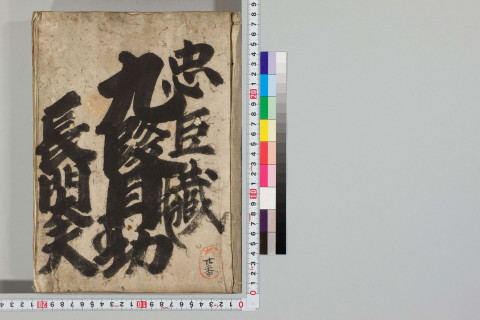 忠臣蔵
九段目切
長門太夫